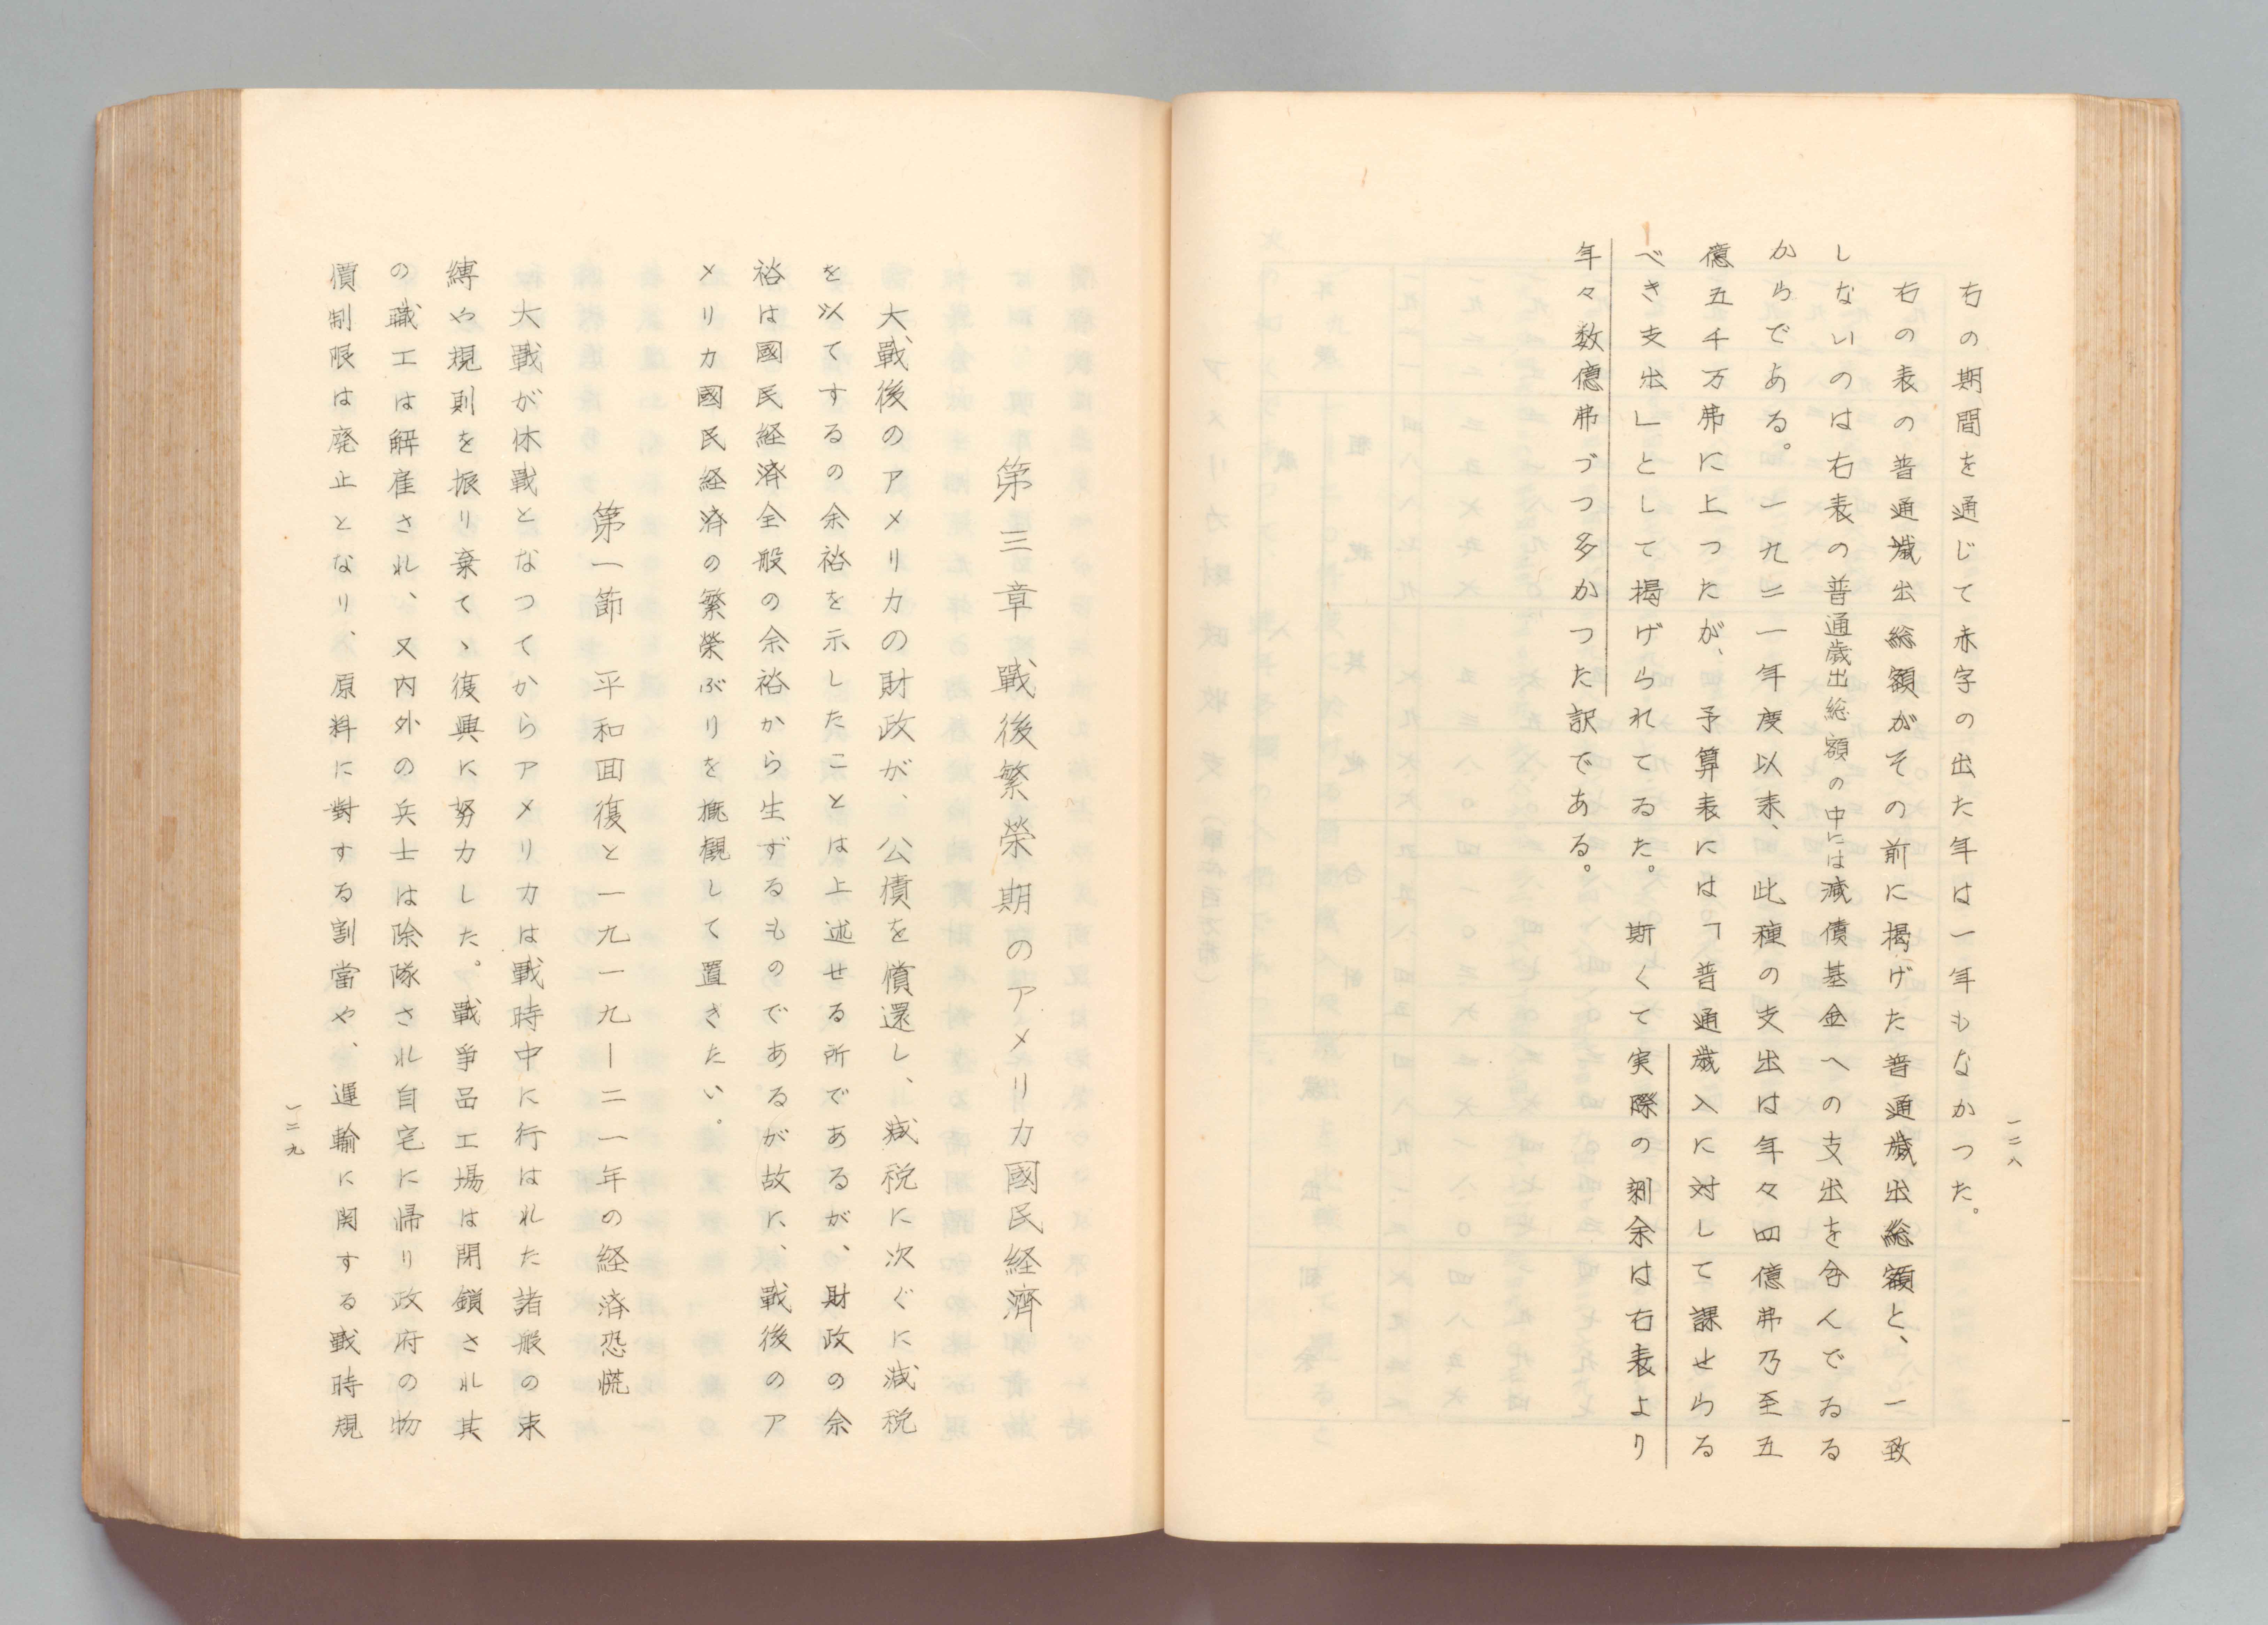 一二八
右の期間を通じて赤字の出た年は一年もなかつた。
右の表の普通歳出総額がその前に掲げた普通歳出総額と、一致
しないのは右表の普通歳出総額の中には減債基金への支出を含んでゐる
からである。一九二一年度以来、此種の支出は年々四億弗乃至五
億五千万弗に上つたが、予算表には「普通歳入に対して課せらる
べき支出」として掲げられてゐた。斯くて実際の剰余は右表より
年々数億弗づつ多かつた訳である。
第三章 戰後繁榮期のアメリカ國民経濟
大戰後のアメリカの財政が、公債を償還し、減税に次ぐに減税
を以てするの余裕を示したことは上述せる所であるが、財政の余
裕は國民経済全般の余裕から生ずるものであるが故に、戰後のア
メリカ國民経済の繁榮ぶりを概觀して置きたい。
第一節 平和囬復と一九一九ー二一年の経済恐慌
大戰が休戰となつてからアメリカは戰時中に行はれた諸般の束
縛や規則を振り棄てゝ復興に努力した。戰爭品工場は閉鎖され其
の職工は解雇され、又内外の兵士は除隊され自宅に帰り政府の物
價制限は廃止となり、原料に對する割當や、運輸に関する戰時規
一二九